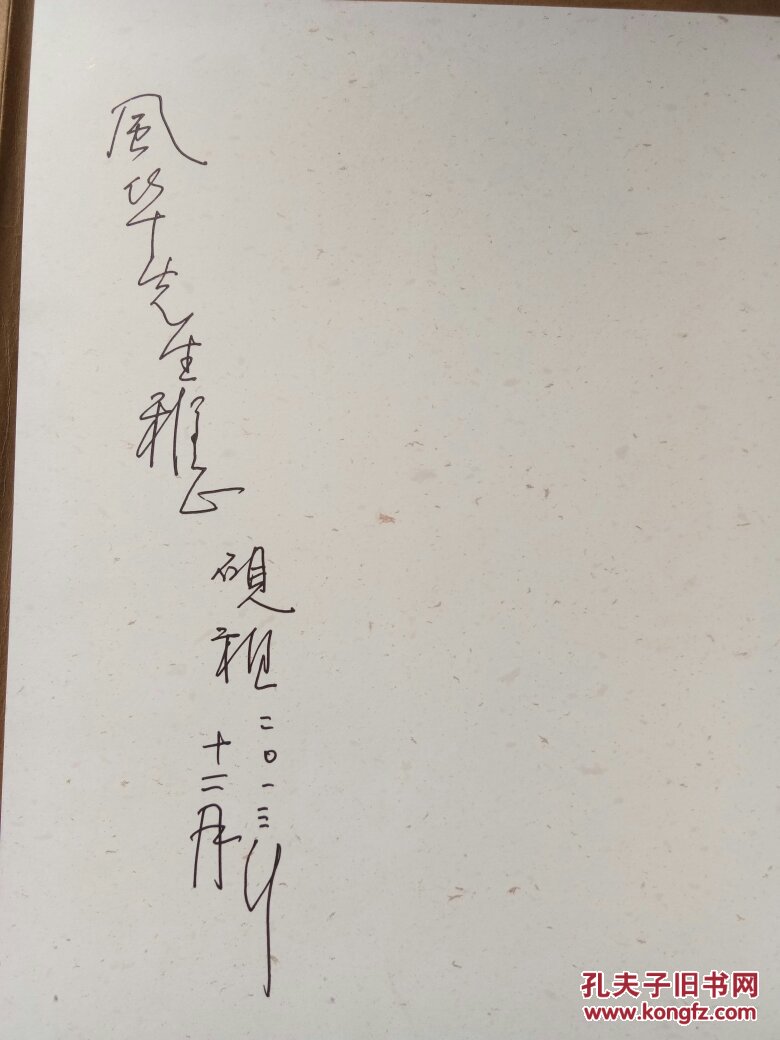 風华先生雅正
硯祖
二〇一三年
十二月
孔夫子旧书网
www.kongfz.com